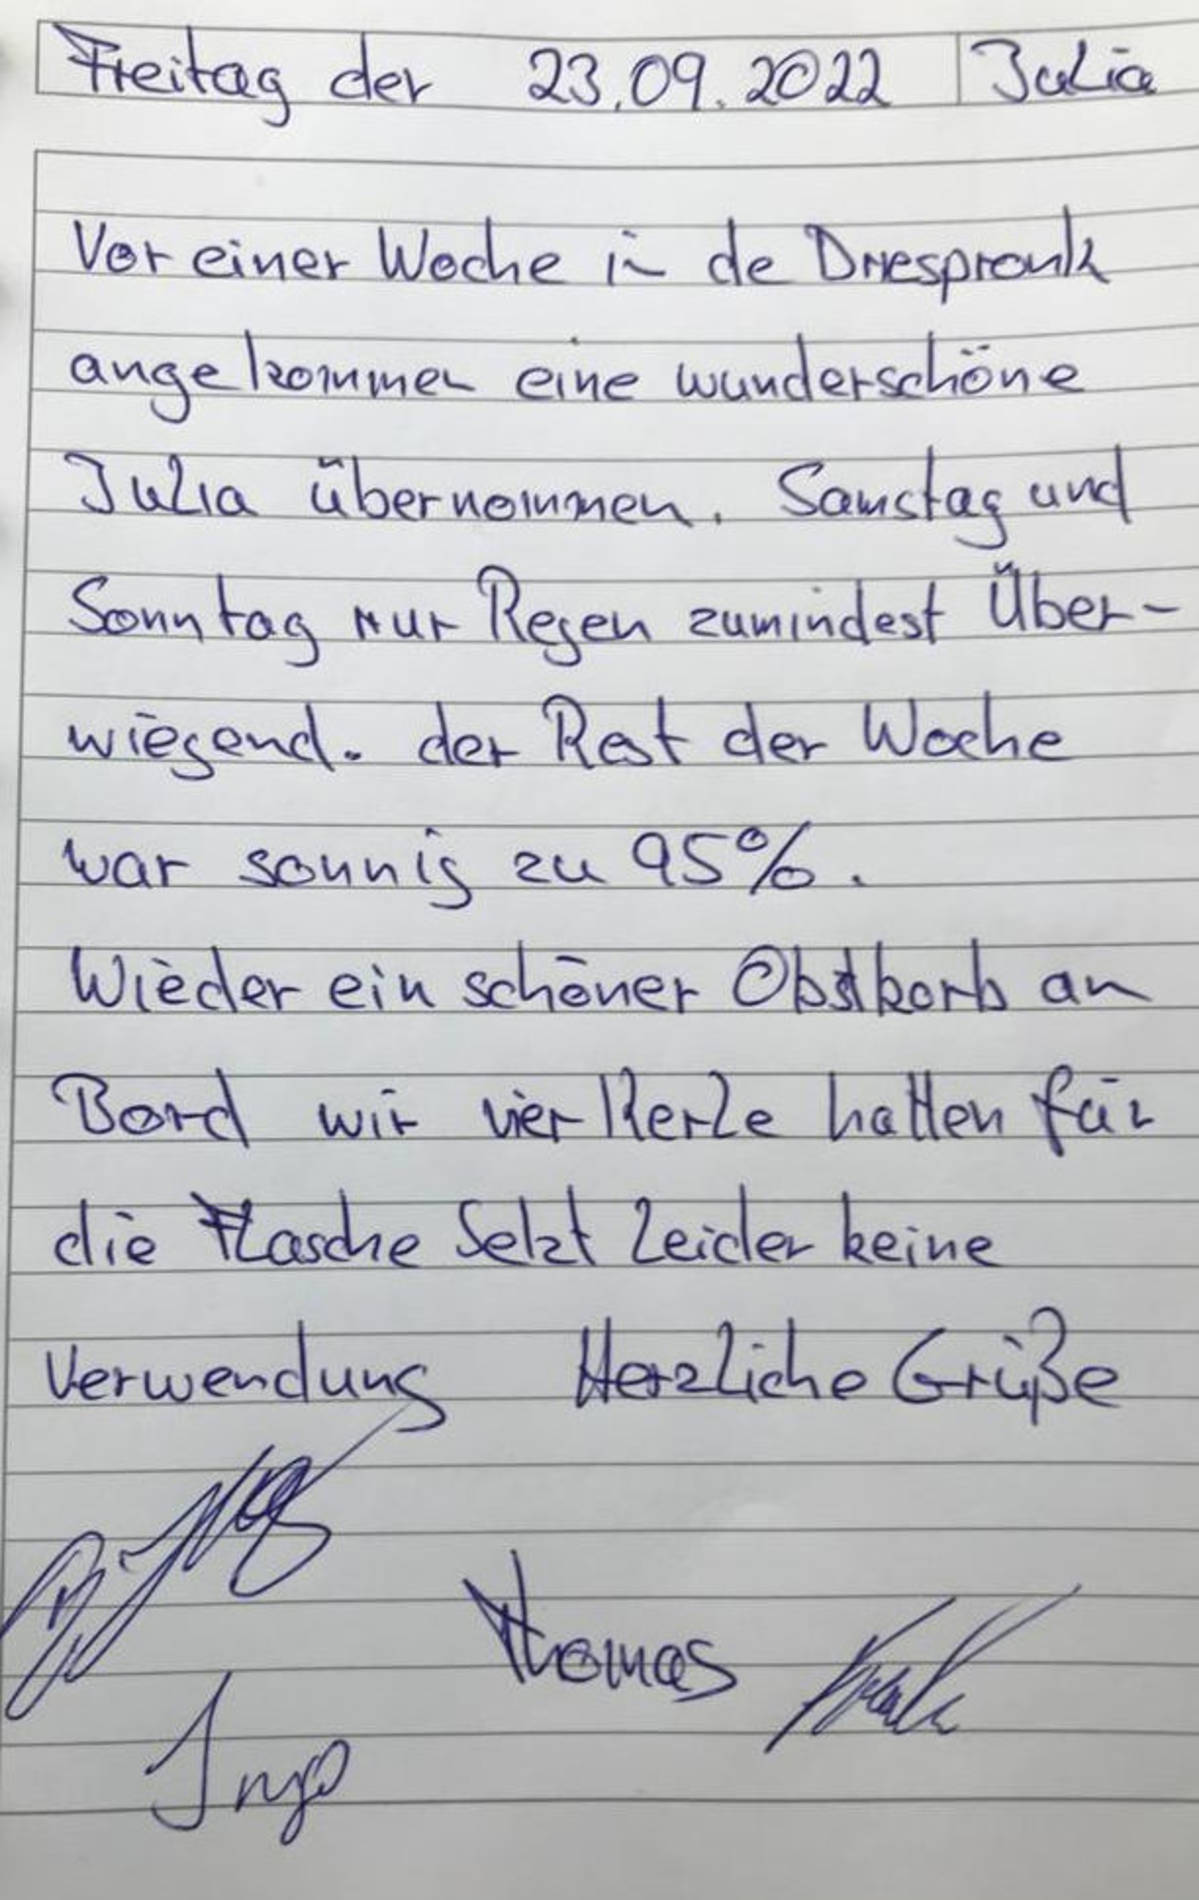 Freitag der 23.09.2022 Julia
Vor einer Woche in de Driespronk
angekommen eine wunderschöne
Julia übernommen. Samstag und
Sonntag nur Regen zumindest Über-
wiegend. der Rest der Woche
war sonnig zu 95%.
Wieder ein schöner Obstkorb an
Bord wir vier Kerle hatten für
die Flasche Sekt leider keine
Verwendung Herzliche Grüße
Thomas
Ingo